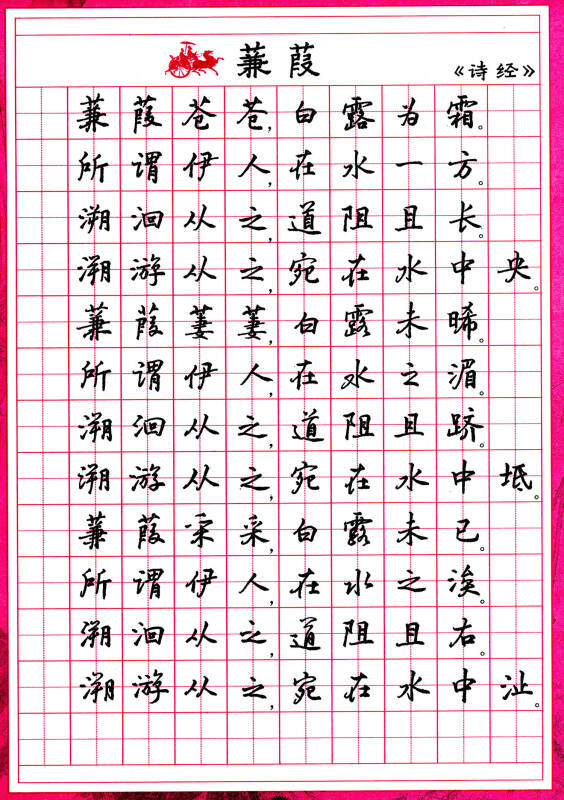 蒹葭
《诗经》
蒹葭苍苍,白露为霜。
所谓伊人,在水一方。
溯洄从之,道阻且长。
溯游从之,宛在水中央。
蒹葭萋萋,白露未晞。
所谓伊人,在水之湄。
溯洄从之,道阻且跻。
溯游从之,宛在水中坻。
蒹葭采采,白露未已。
所谓伊人,在水之涘。
溯洄从之,道阻且右。
溯游从之,宛在水中沚。